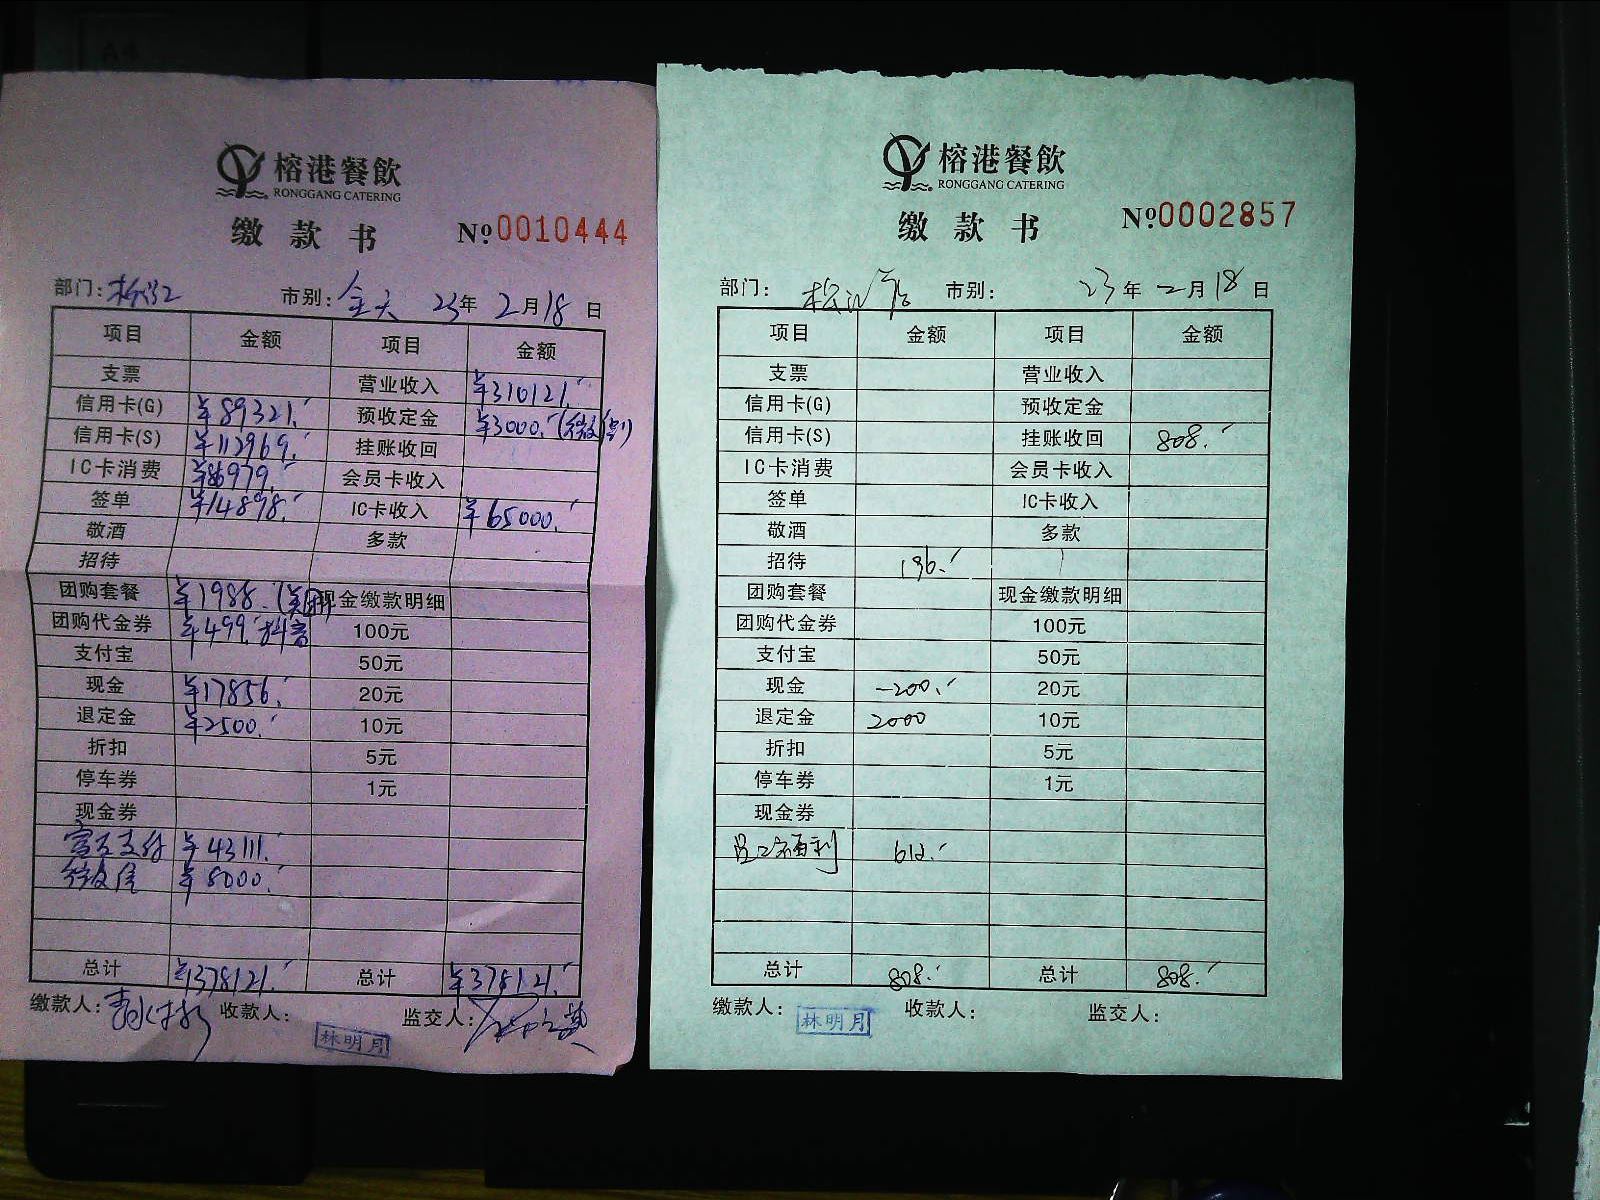 榕港餐飲
RONGGANG CATERING
缴款书 №0010444
部门: 市别:全天 23年2月18日
项目 金额 项目 金额
支票 营业收入 ¥310121.
信用卡(G) ¥89321. 预收定金 ¥3000.(微信)
信用卡(S) ¥112969. 挂账收回
IC卡消费 ¥86979. 会员卡收入
签单 ¥14898. IC卡收入 ¥65000.
敬酒 多款
招待
团购套餐 ¥1988.(美团) 现金缴款明细
团购代金券 ¥499.抖音 100元
支付宝 50元
现金 ¥17856. 20元
退定金 ¥2500. 10元
折扣 5元
停车券 1元
现金券
富友支付 ¥43111.
微信 ¥8000.
总计 ¥378121. 总计 ¥378121.
缴款人: 收款人: 林明月 监交人:
榕港餐飲
RONGGANG CATERING
缴款书 №0002857
部门: 市别: 23年2月18日
项目 金额 项目 金额
支票 营业收入
信用卡(G) 预收定金
信用卡(S) 挂账收回 808.
IC卡消费 会员卡收入
签单 IC卡收入
敬酒 多款
招待 196.
团购套餐 现金缴款明细
团购代金券 100元
支付宝 50元
现金 -200. 20元
退定金 2000 10元
折扣 5元
停车券 1元
现金券
员工福利 612.
总计 808. 总计 808.
缴款人: 林明月 收款人: 监交人: